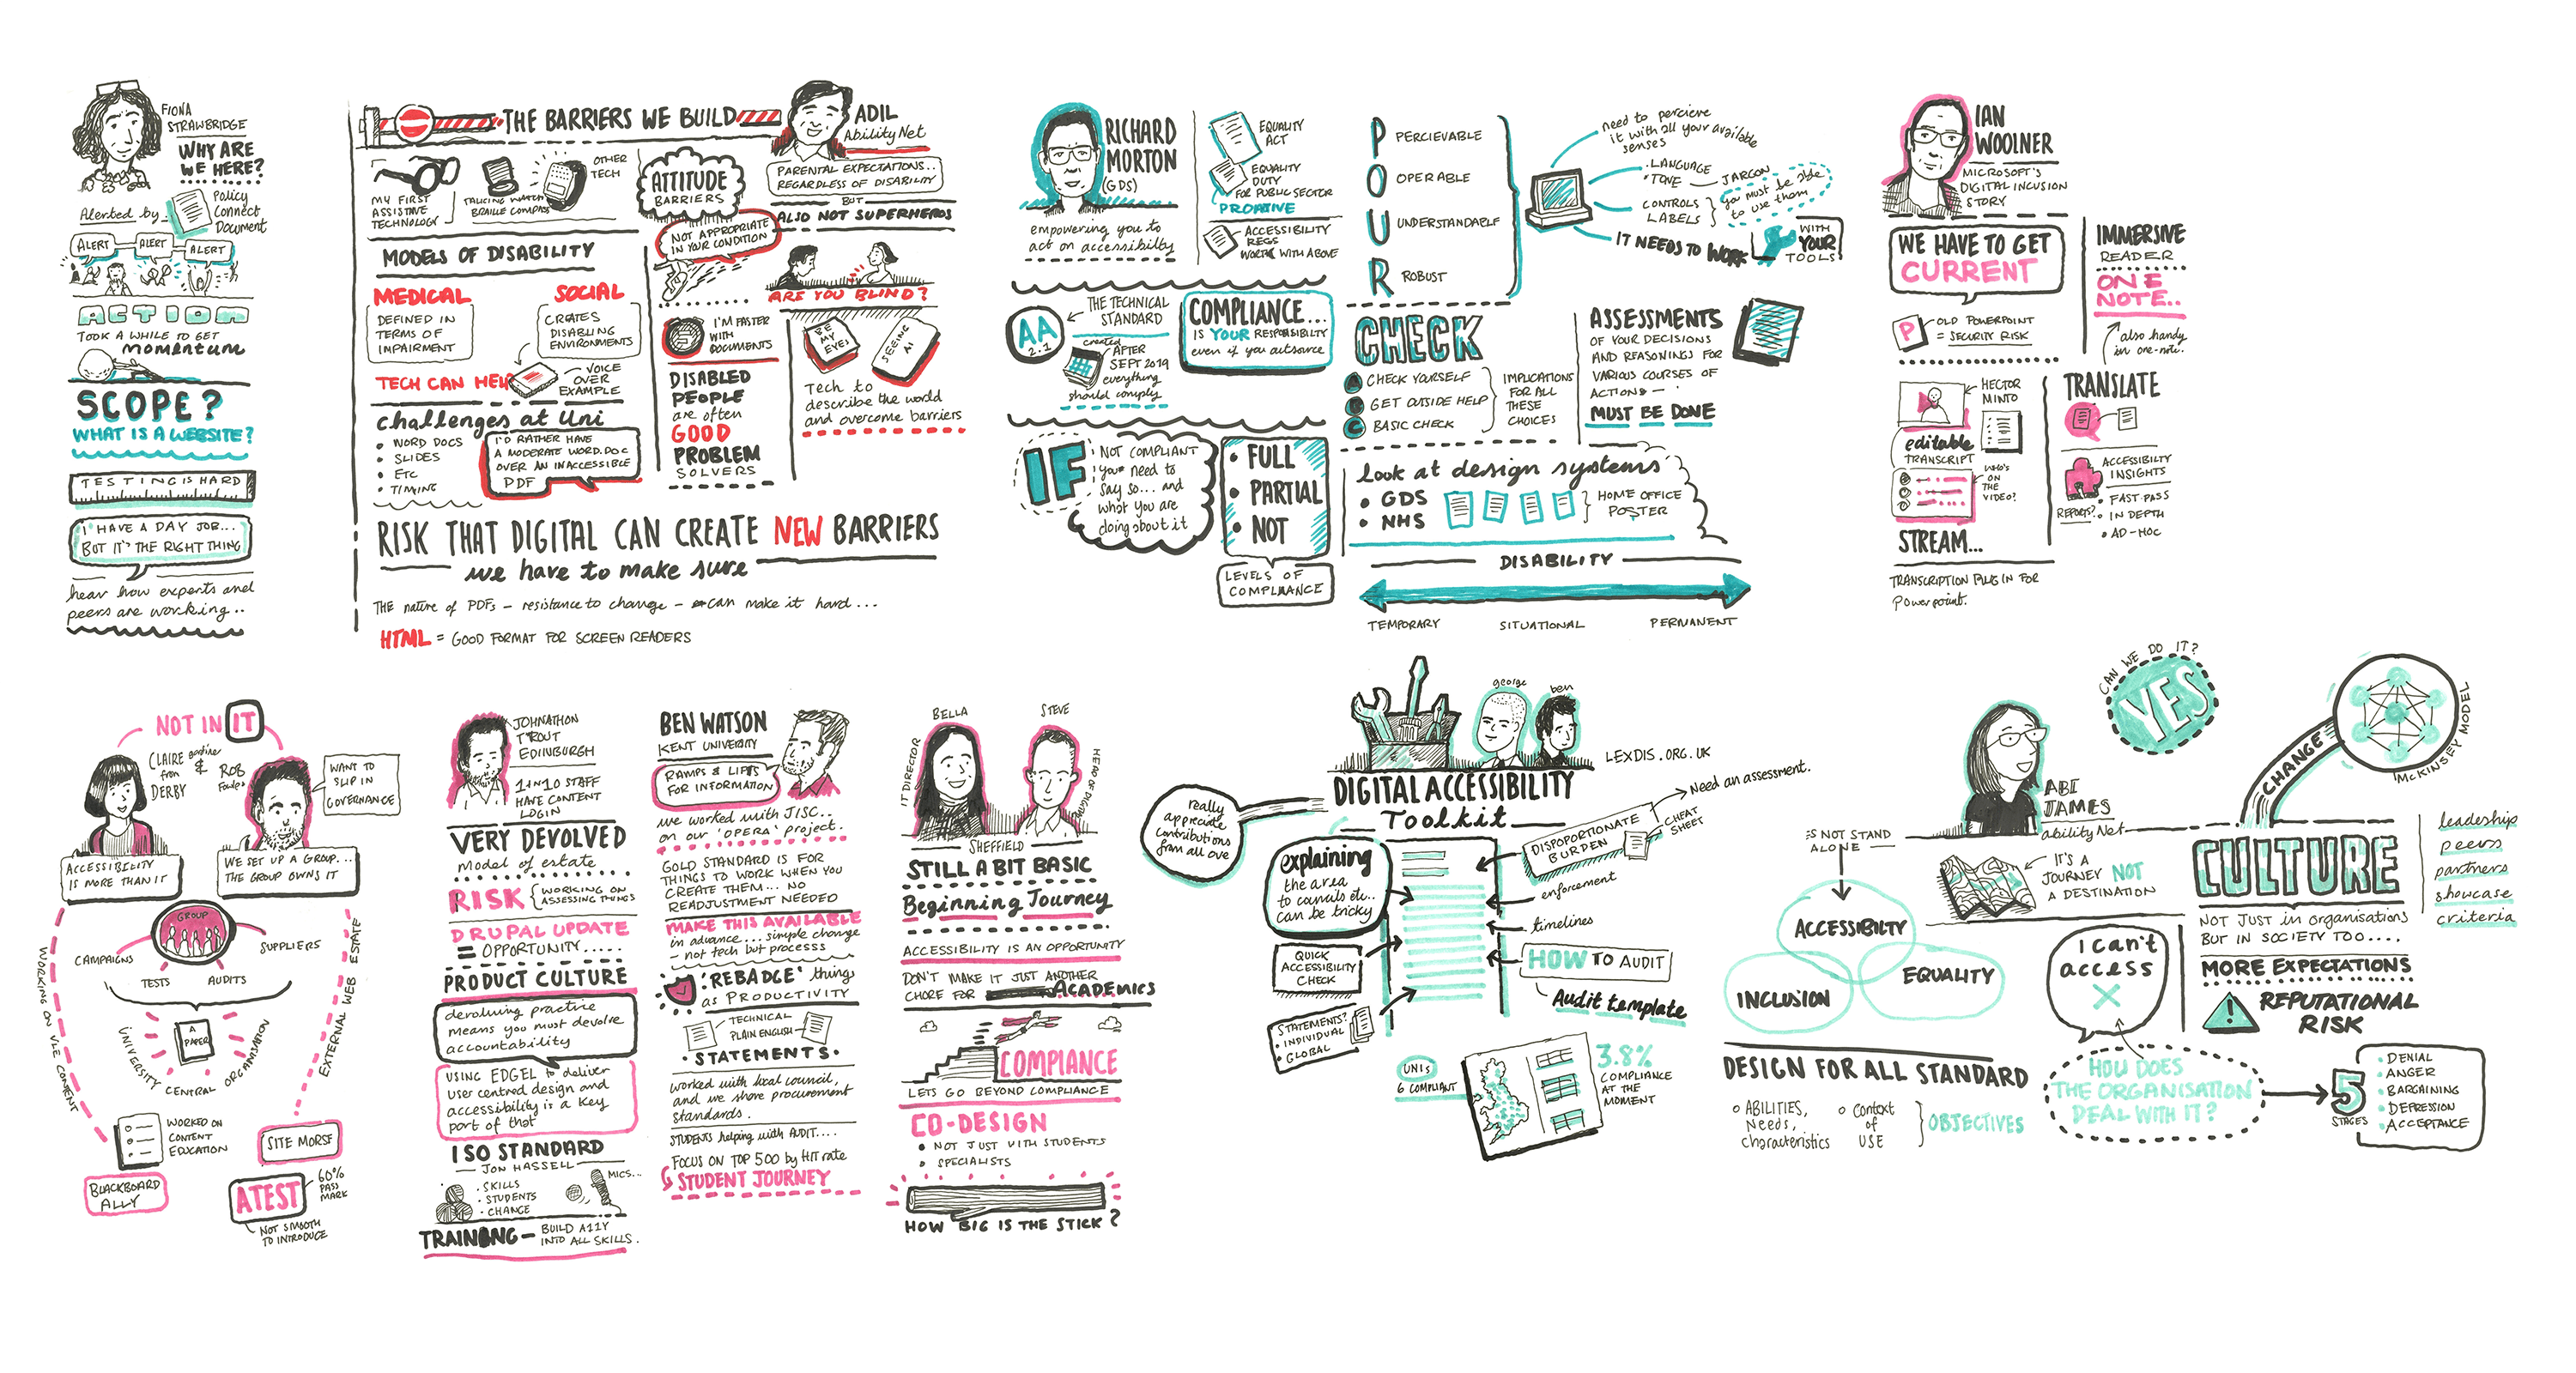 FIONA
STRAWBRIDGE
WHY ARE
WE HERE?
Alerted by
Policy
Connect
Document
ALERT
ALERT
ALERT
ACTION
TOOK A WHILE TO GET
momentum
SCOPE?
WHAT IS A WEBSITE?
TESTING IS HARD
I HAVE A DAY JOB...
BUT IT'S THE RIGHT THING
hear how experts and
peers are working..
THE BARRIERS WE BUILD
ADIL
AbilityNet
MY FIRST
ASSISTIVE
TECHNOLOGY
TALKING WATCH
BRAILLE COMPASS
OTHER
TECH
ATTITUDE
BARRIERS
PARENTAL EXPECTATIONS..
REGARDLESS OF DISABILITY
BUT
ALSO NOT SUPERHEROS
NOT APPROPRIATE
IN YOUR CONDITION
ARE YOU BLIND?
MODELS OF DISABILITY
MEDICAL
DEFINED IN
TERMS OF
IMPAIRMENT
SOCIAL
CREATES
DISABLING
ENVIRONMENTS
TECH CAN HELP
VOICE
OVER
EXAMPLE
challenges at Uni
• WORD DOCS
• SLIDES
• ETC
• TIMING
I'D RATHER HAVE
A MODERATE WORD.DOC
OVER AN INACCESSIBLE
PDF
I'M FASTER
WITH
DOCUMENTS
DISABLED
PEOPLE
are often
GOOD
PROBLEM
SOLVERS
BE
MY
EYES
SEEING
AI
Tech to
describe the world
and overcome barriers
RISK THAT DIGITAL CAN CREATE NEW BARRIERS
we have to make sure
THE nature of PDFs - resistance to change - can make it hard...
HTML = GOOD FORMAT FOR SCREEN READERS
RICHARD
MORTON
(GDS)
empowering you to
act on accessibilty
EQUALITY
ACT
EQUALITY
DUTY
FOR PUBLIC SECTOR
PROATIVE
ACCESSIBILITY
REGS
WORK WITH ABOVE
AA
2.1
THE TECHNICAL
STANDARD
created
AFTER
SEPT 2019
everything
should comply
COMPLIANCE...
IS YOUR RESPONSIBILITY
even if you outsource
IF
NOT COMPLIANT
you need to
say so... and
what you are
doing about it
• FULL
• PARTIAL
• NOT
LEVELS OF
COMPLIANCE
P PERCIEVABLE
O OPERABLE
U UNDERSTANDABLE
R ROBUST
need to percieve
it with all your available
senses
• LANGUAGE
• TONE
JARGON
CONTROLS
LABELS
you must be able
to use them
IT NEEDS TO WORK
WITH
YOUR
TOOLS
CHECK
A CHECK YOURSELF
B GET OUTSIDE HELP
C BASIC CHECK
IMPLICATIONS
FOR ALL
THESE
CHOICES
ASSESSMENTS
OF YOUR DECISIONS
AND REASONINGS FOR
VARIOUS COURSES OF
ACTIONS -
MUST BE DONE
look at design systems
• GDS
• NHS
HOME OFFICE
POSTER
DISABILITY
TEMPORARY
SITUATIONAL
PERMANENT
IAN
WOOLNER
MICROSOFT'S
DIGITAL INCUSION
STORY
WE HAVE TO GET
CURRENT
P
OLD POWERPOINT
= SECURITY RISK
IMMERSIVE
READER
ONE
NOTE..
also handy
in one-note.
HECTOR
MINTO
editable
TRANSCRIPT
WHO'S
ON
THE
VIDEO?
STREAM...
TRANSCRIPTION PLUG IN FOR
Powerpoint.
TRANSLATE
ACCESSIBILTY
INSIGHTS
REPORTS?
• FAST PASS
• IN DEPTH
• AD-HOC
NOT IN IT
CLAIRE
from
DERBY
&
ROB
WANT TO
SLIP IN
GOVERNANCE
ACCESSIBILITY
IS MORE THAN IT
WE SET UP A GROUP...
THE GROUP OWNS IT
GROUP
CAMPAIGNS
TESTS
AUDITS
SUPPLIERS
A
PAPER
UNIVERSITY
CENTRAL
ORGANISATION
WORKING ON VLE CONTENT
EXTERNAL WEB ESTATE
WORKED ON
CONTENT
EDUCATION
BLACKBOARD
ALLY
SITE MORSE
ATEST
60%
PASS
MARK
NOT SMOOTH
TO INTRODUCE
JOHNATHON
T'ROUT
EDINBURGH
1 IN 10 STAFF
HAVE CONTENT
LOGIN
VERY DEVOLVED
model of estate
RISK
WORKING ON
ASSESSING THINGS
DRUPAL UPDATE
= OPPORTUNITY.....
PRODUCT CULTURE
devolving practice
means you must devolve
accountability
USING EDGEL to deliver
user centred design and
accessibility is a key
part of that
ISO STANDARD
JON HASSELL
• SKILLS
• STUDENTS
• CHANGE
MICS...
TRAINING -
BUILD A11Y
INTO ALL SKILLS.
BEN WATSON
KENT UNIVERITY
RAMPS & LIFTS
FOR INFORMATION
we worked with JISC..
on our 'OPERA' project.
GOLD STANDARD IS FOR
THINGS TO WORK WHEN YOU
CREATE THEM... NO
READJUSTMENT NEEDED
MAKE THIS AVAILABLE
in advance... simple change
- not tech but processs
'REBADGE' things
as PRODUCTIVITY
TECHNICAL
PLAIN ENGLISH
• STATEMENTS •
worked with local council,
and we share procurement
standards.
STUDENTS helping with AUDIT....
FOCUS ON TOP 500 by HIT rate
STUDENT JOURNEY
BELLA
STEVE
IT DIRECTOR
HEAD OF DIGITAL
SHEFFIELD
STILL A BIT BASIC
Beginning Journey
ACCESSIBILITY IS AN OPPORTUNITY
DON'T MAKE IT JUST ANOTHER
CHORE FOR ACADEMICS
COMPIANCE
LETS GO BEYOND COMPLIANCE
CO-DESIGN
• NOT JUST WITH STUDENTS
• SPECIALISTS
HOW BIG IS THE STICK?
george
ben
LEXDIS.ORG.UK
DIGITAL ACCESSIBILITY
Toolkit
really
appreciate
contributions
from all ove
explaining
the area
to councils etc..
can be tricky
QUICK
ACCESSIBILITY
CHECK
STATEMENTS?
• INDIVIDUAL
• GLOBAL
DISPOPORTIONATE
BURDEN
CHEAT
SHEET
Need an assessment.
enforcement
timelines
HOW TO AUDIT
Audit template
UNIS
6 COMPLIANT
3.8%
COMPLIANCE
AT THE
MOMENT
ABI
JAMES
abilityNet
CAN WE DO IT?
YES
IS NOT STAND
ALONE
IT'S A
JOURNEY NOT
A DESTINATION
ACCESSIBILTY
INCLUSION
EQUALITY
DESIGN FOR ALL STANDARD
ABILITIES,
Needs,
characteristics
Context
of
USE
OBJECTIVES
CHANGE
McKINSEY MODEL
CULTURE
NOT JUST in organisations
BUT IN SOCIETY TOO....
MORE EXPECTATIONS
! REPUTATIONAL
RISK
leadeship
peers
partners
showcase
criteria
I can't
access
X
HOW DOES
THE ORGANISATION
DEAL WITH IT?
5
STAGES
• DENIAL
• ANGER
• BARGAINING
• DEPRESSION
• ACCEPTANCE